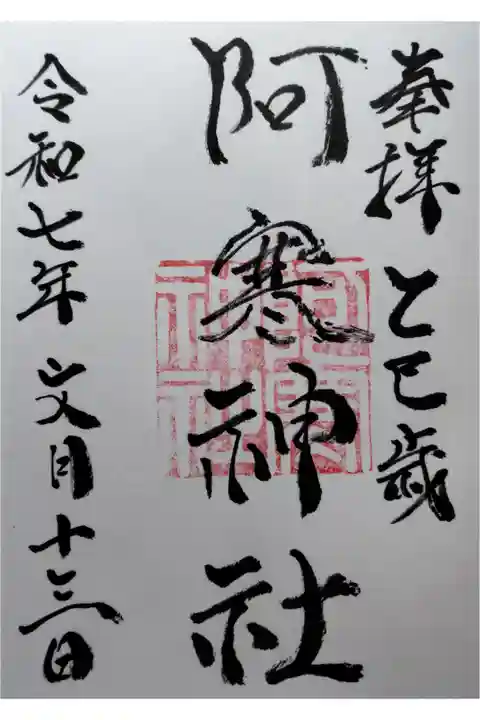 奉拝 乙巳歳
阿寒神社
令和七年 文月十三日